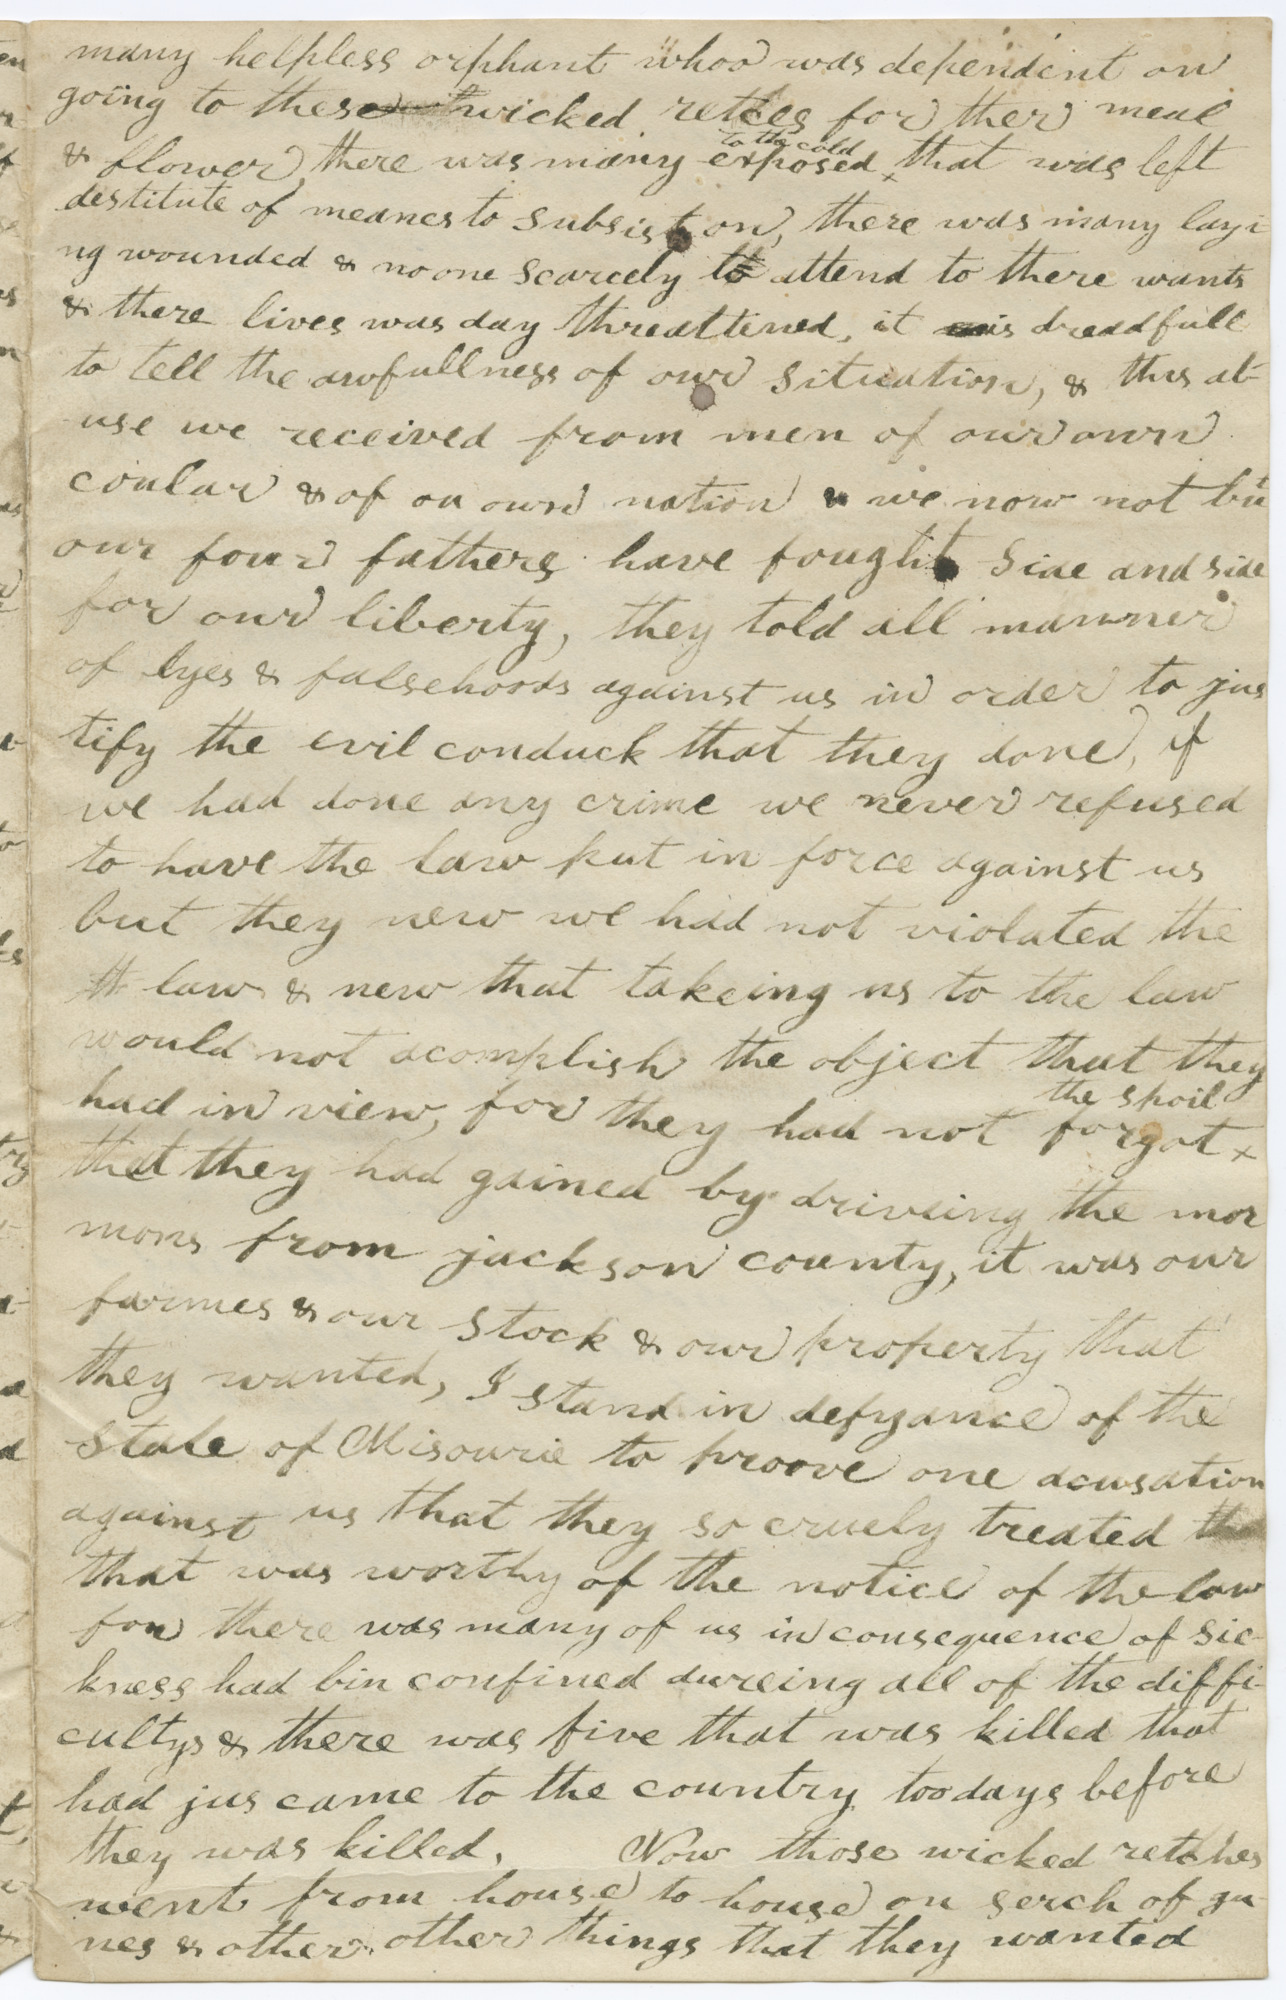 many helpless orphant whoo was dependent on
going to these wicked retces for ther meal
& flower, there was many exposed to the cold that was left
destitute of meanes to subsist on, there was many layi
ng wounded & no one scarcely to attend to there wants
& there lives was day threattened, it is dreadfull
to tell the awfullness of our situation, & this ab-
use we received from men of our own
coular & of ou own nation & we now not but
our four fathers have fought side and side
for our liberty, they told all manner
of lyes & falsehoods against us in order to jus
tify the evil conduck that they done, if
we had done any crime we never refused
to have the law put in force against us
but they new we had not violated the
th law & new that takeing us to the law
would not acomplish the object that they
had in view, for they had not forgot the spoil
that they had gained by driveing the mor
mons from jackson county, it was our
farmes & our stock & our property that
they wanted, I stand in defyance of the
state of Misourie to proove one acusation
against us that they so cruely treated
that was worthy of the notice of the law
for there was many of us in consequence of sic-
kness had bin confined dureing all of the diffi-
cultys & there was five that was killed that
had jus came to the country too days before
they was killed. Now those wicked retches
went from house to house on serch of gu-
nes & other other things that they wanted